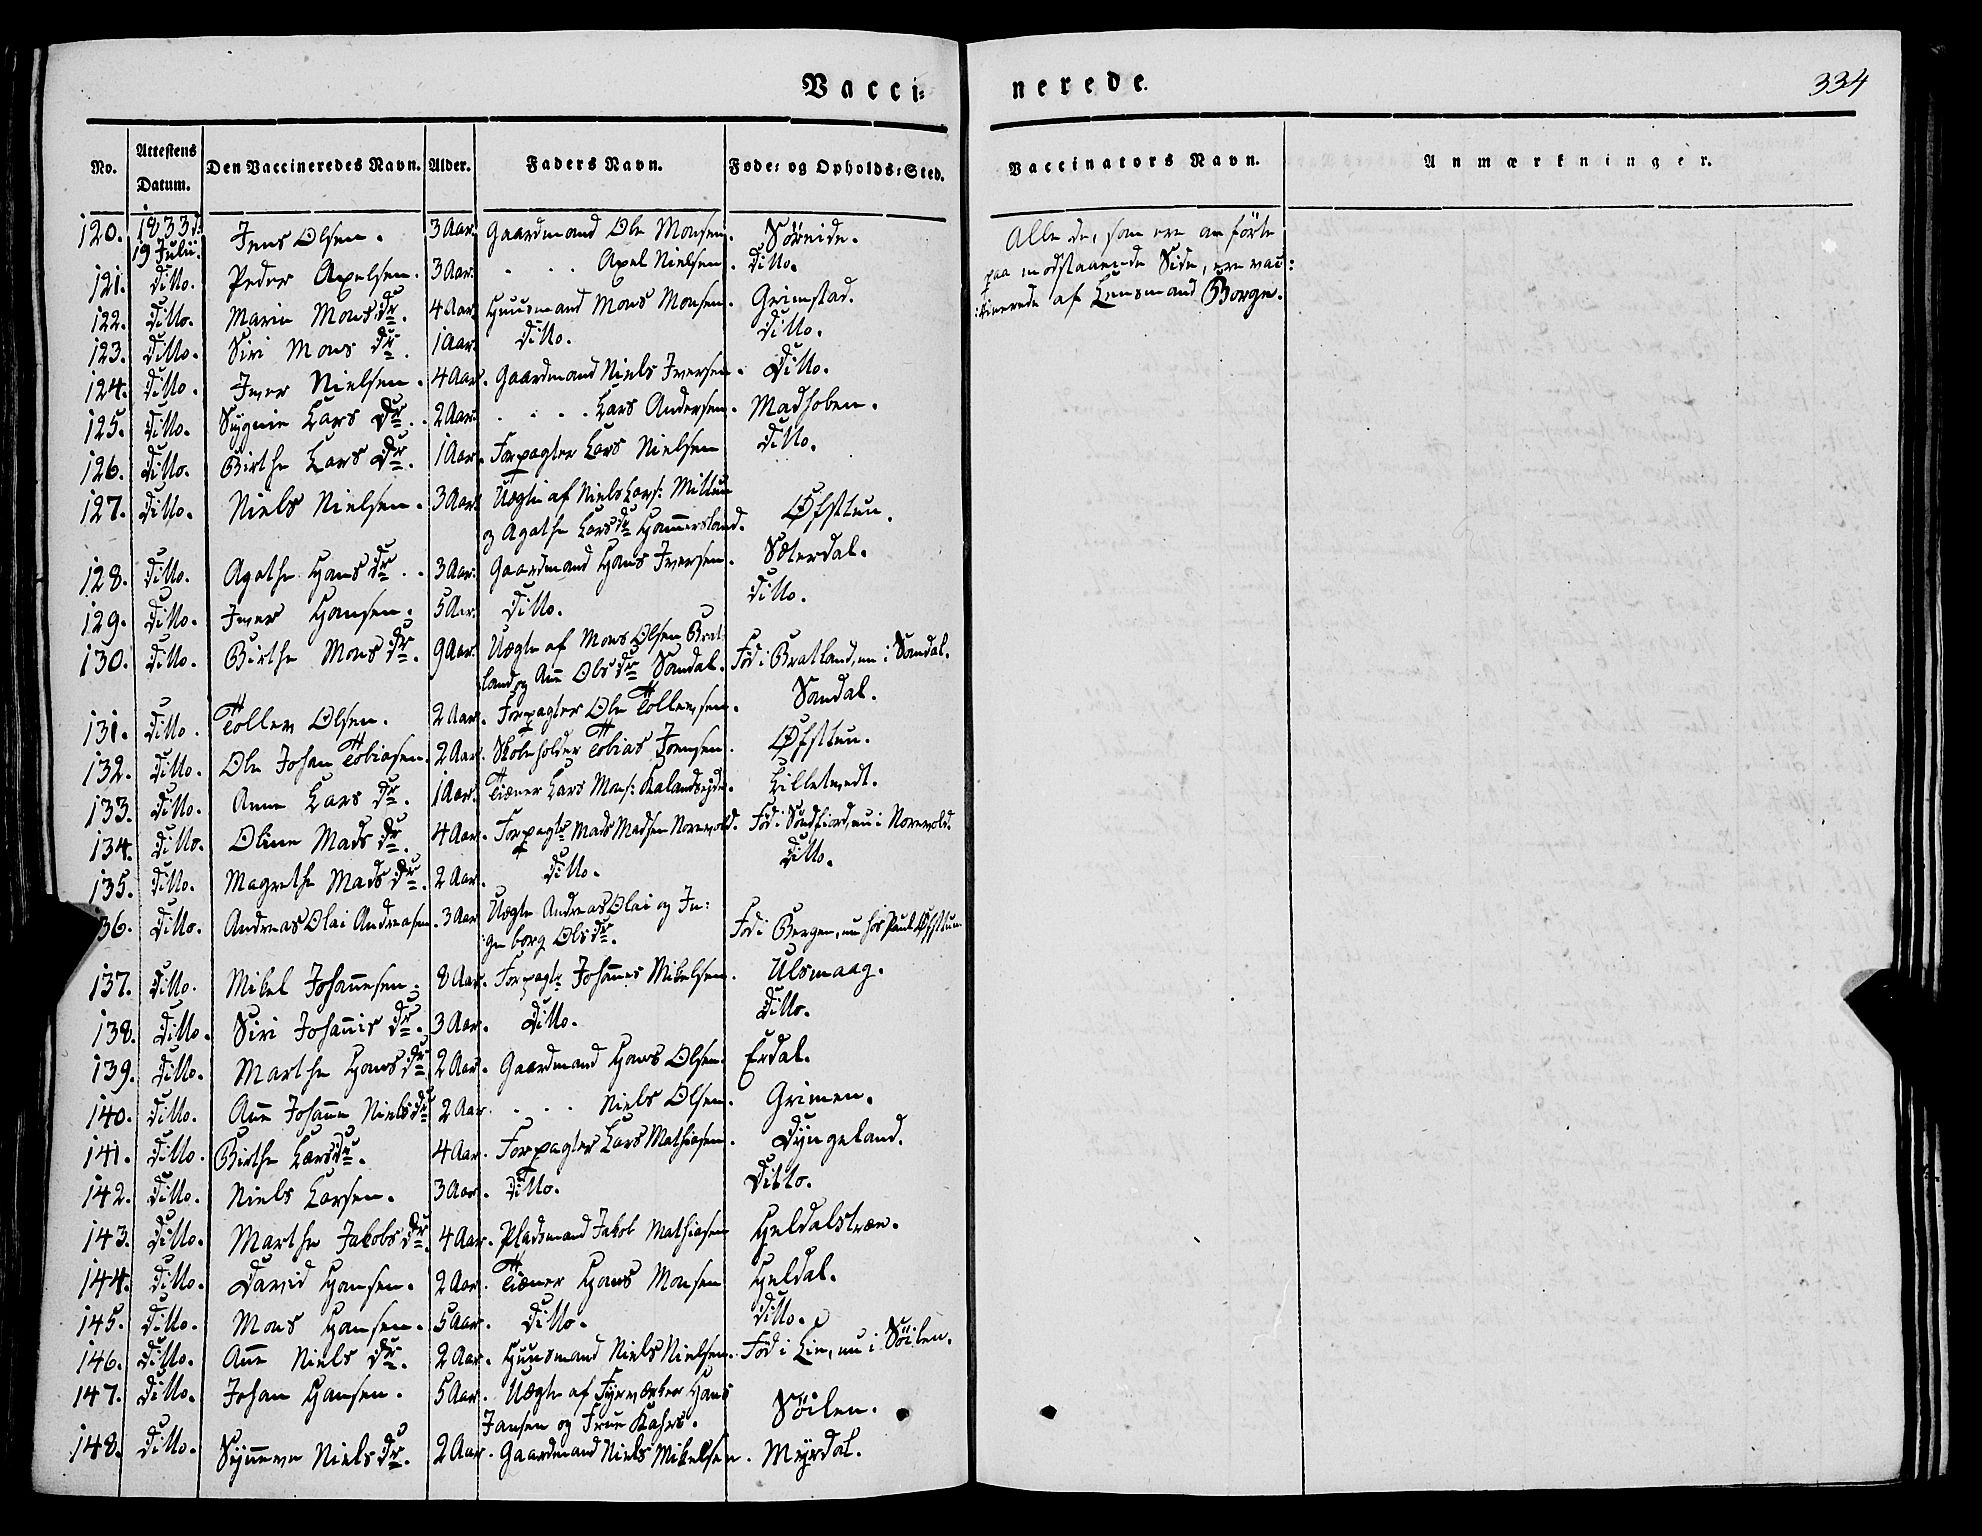 Vacci= nerede.
334
No. Attestens Datum. Den Vaccineredes Navn. Alder. Faders Navn. Føde= og Opholds=Sted. Vaccinators Navn. Anmærkninger.
120. 1833 d. 19 Julii. Jens Olsen. 3 Aar. Gaardmand Ole Monsen. Søreide.
121. Ditto. Peder Axelsen. 3 Aar. . . . Axel Nielsen. Ditto.
122. Ditto. Marie Mons Dr. 4 Aar. Huusmand Mons Monsen. Grimstad.
123. Ditto. Siri Mons Dr. 1 Aar. Ditto. Ditto.
124. Ditto. Iver Nielsen. 4 Aar. Gaardmand Niels Iversen. Ditto.
125. Ditto. Sygnie Lars Dr. 2 Aar. . . . . Lars Andersen. Madhoben.
126. Ditto. Birthe Lars Dr. 1 Aar. Forpagter Lars Nielsen Ditto.
127. Ditto. Niels Nielsen. 3 Aar. Uægte af Niels Lars: Mittun
og Agathe Larsdr Hammersland. Øfsttun.
128. Ditto. Agathe Hans Dr. . 3 Aar. Gaardmand Hans Iversen. Sæterdal.
129. Ditto. Iver Hansen. 5 Aar. Ditto. Ditto.
130. Ditto. Birthe Mons Dr. 9 Aar. Uægte af Mons Olsen Brat-
land og Añe Ols Dr Sandal. Fød i Bratland, nu i Sandal.
131. Ditto. Tollev Olsen. 2 Aar. Forpagter Ole Tollevsen. Sandal.
132. Ditto. Ole Johan Tobiasen. 2 Aar. Skoleholder Tobias Joensen. Øfsttun.
133. Ditto. Anne Lars Dr. 1 Aar. Tiener Lars Mons: Kalandseyde. Lilletvedt.
134. Ditto. Oline Mads Dr. 4 Aar. Forpagtr Mads Madsen Norevold. Fød i Søndfiord, nu i Norevold.
135. Ditto. Magrethe Mads Dr. 2 Aar. Ditto. Ditto.
36. Ditto. Andreas Olai Andreasen. 3 Aar Uægte Andreas Olai og In:
geborg Ols Dr. Fød i Bergen, nu hos Paul Øfsttun
137. Ditto. Mikel Johañesen. 8 Aar. Forpagtr Johañes Mikelsen. Ulsmaag.
138. Ditto. Siri Johañis Dr. 3 Aar. Ditto. Ditto.
139. Ditto. Marthe Hans Dr 2 Aar. Gaardmand Hans Olsen. Erdal.
140. Ditto. Añe Johañe Niels Dr 2 Aar. . . . Niels Olsen. Grimen.
141. Ditto. Birthe Lars Dr. 4 Aar. Forpagter Lars Mathiasen. Dyngeland.
142. Ditto. Niels Larsen. 3 Aar. Ditto. Ditto.
143. Ditto. Marthe Jakobs Dr. 4 Aar. Pladsmand Jakob Mathiasen Heldalstræe.
144. Ditto. David Hansen. 2 Aar. Tiener Hans Monsen Heldal.
145. Ditto. Mons Hansen. 5 Aar. Ditto. Ditto.
146. Ditto. Añe Niels Dr. 2 Aar. Huusmand Niels Nielsen. Fød i Lie, nu i Søilen.
147. Ditto. Johan Hansen. 5 Aar. Uægte af Fyrværker Hans
Jansen og Frue Kahrs. Søilen.
148. Ditto. Syñeve Niels Dr. 2 Aar. Gaardmand Niels Mikelsen. Myrdal.
Alle de, som ere anførte
paa modstaaende Side, ere vac:
:cinerede af Lensmand Borge.